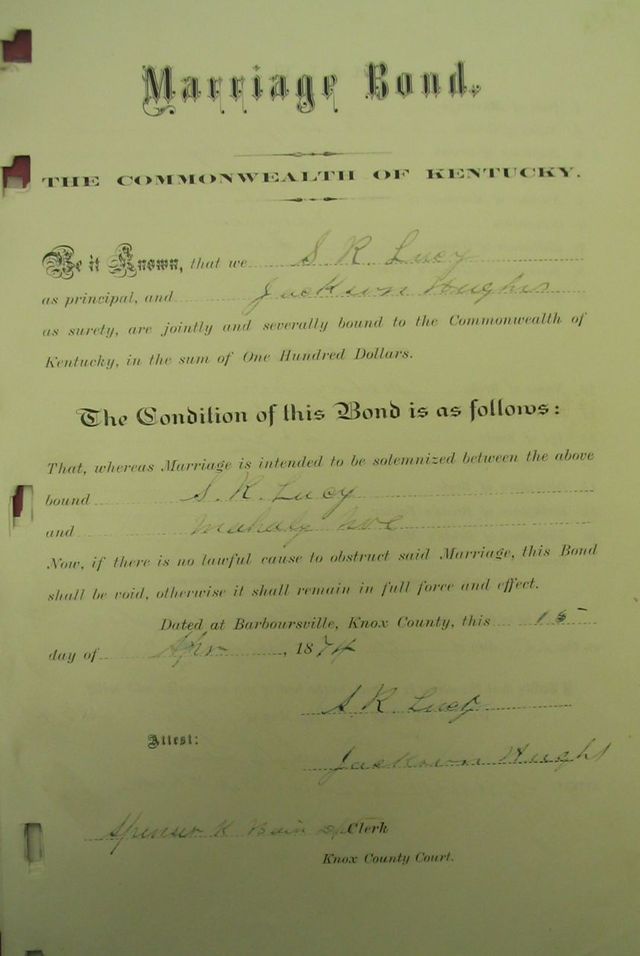 Marriage Bond.
THE COMMONWEALTH OF KENTUCKY.
Be it Known, that we S R. Lucy
as principal, and Jackson Hughes
as surety, are jointly and severally bound to the Commonwealth of
Kentucky, in the sum of One Hundred Dollars.
The Condition of this Bond is as follows:
That, whereas Marriage is intended to be solemnized between the above
bound S. R. Lucy
and Mahaly
Now, if there is no lawful cause to obstruct said Marriage, this Bond
shall be void, otherwise it shall remain in full force and effect.
Dated at Barboursville, Knox County, this 15
day of Apr, 1874
S R Lucy
Attest:
Jackson Hughs
Spenser K Bain Clerk
Knox County Court.